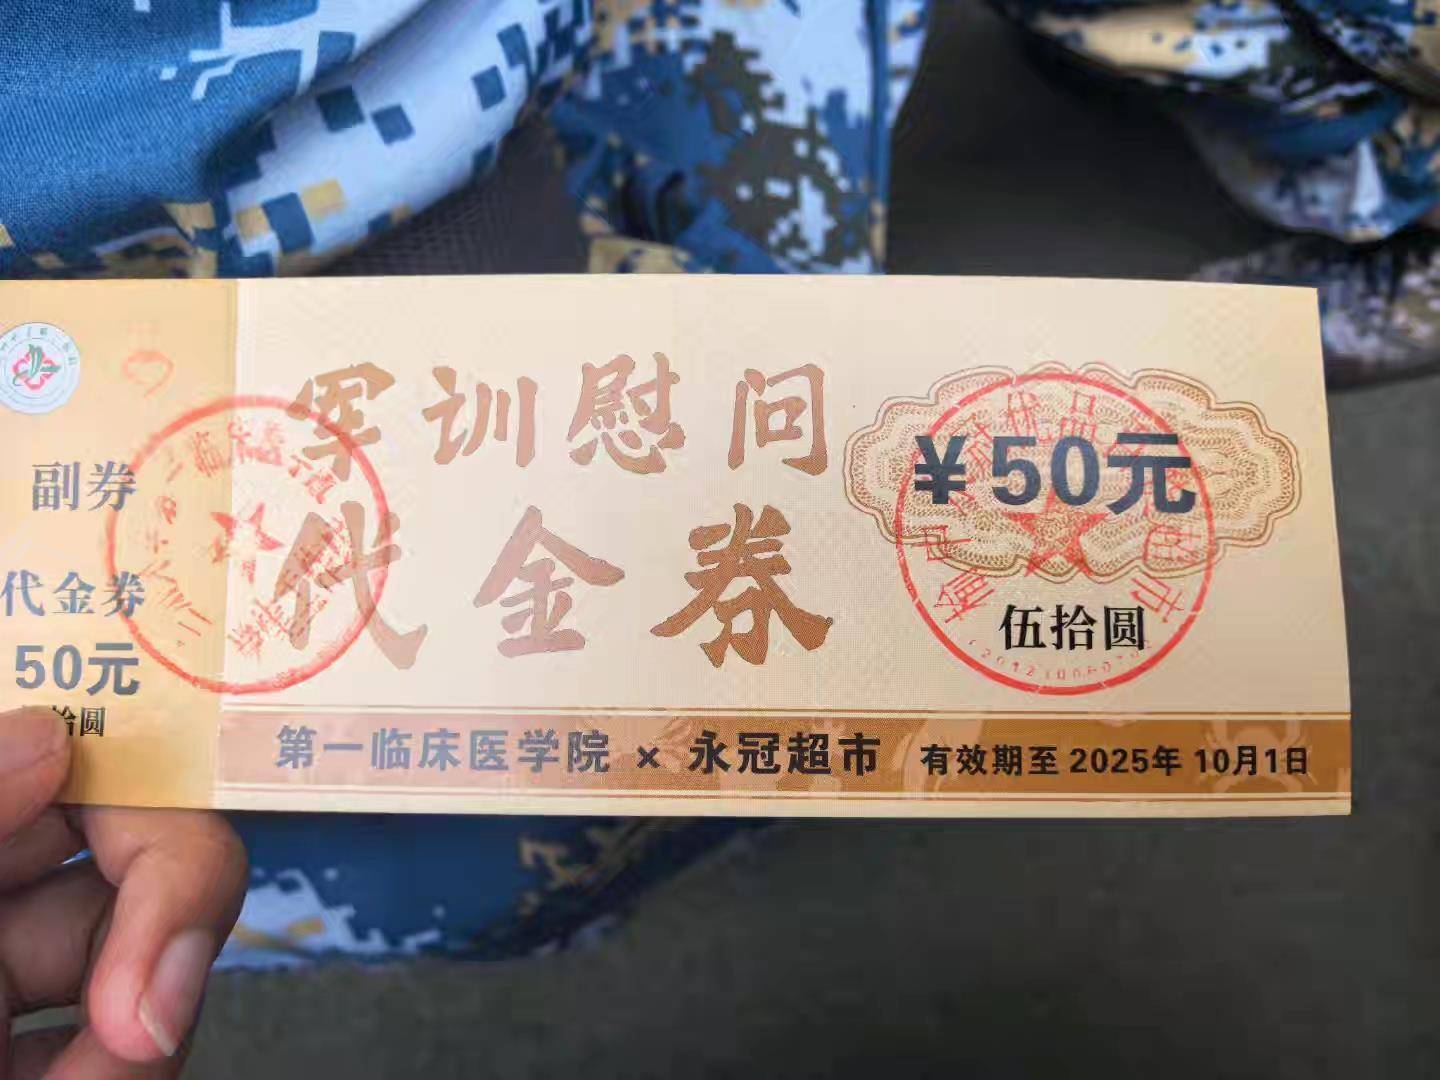 副券
代金券
50元
拾圆
军训慰问
代金券
¥50元
伍拾圆
第一临床医学院 × 永冠超市
有效期至 2025年 10月1日